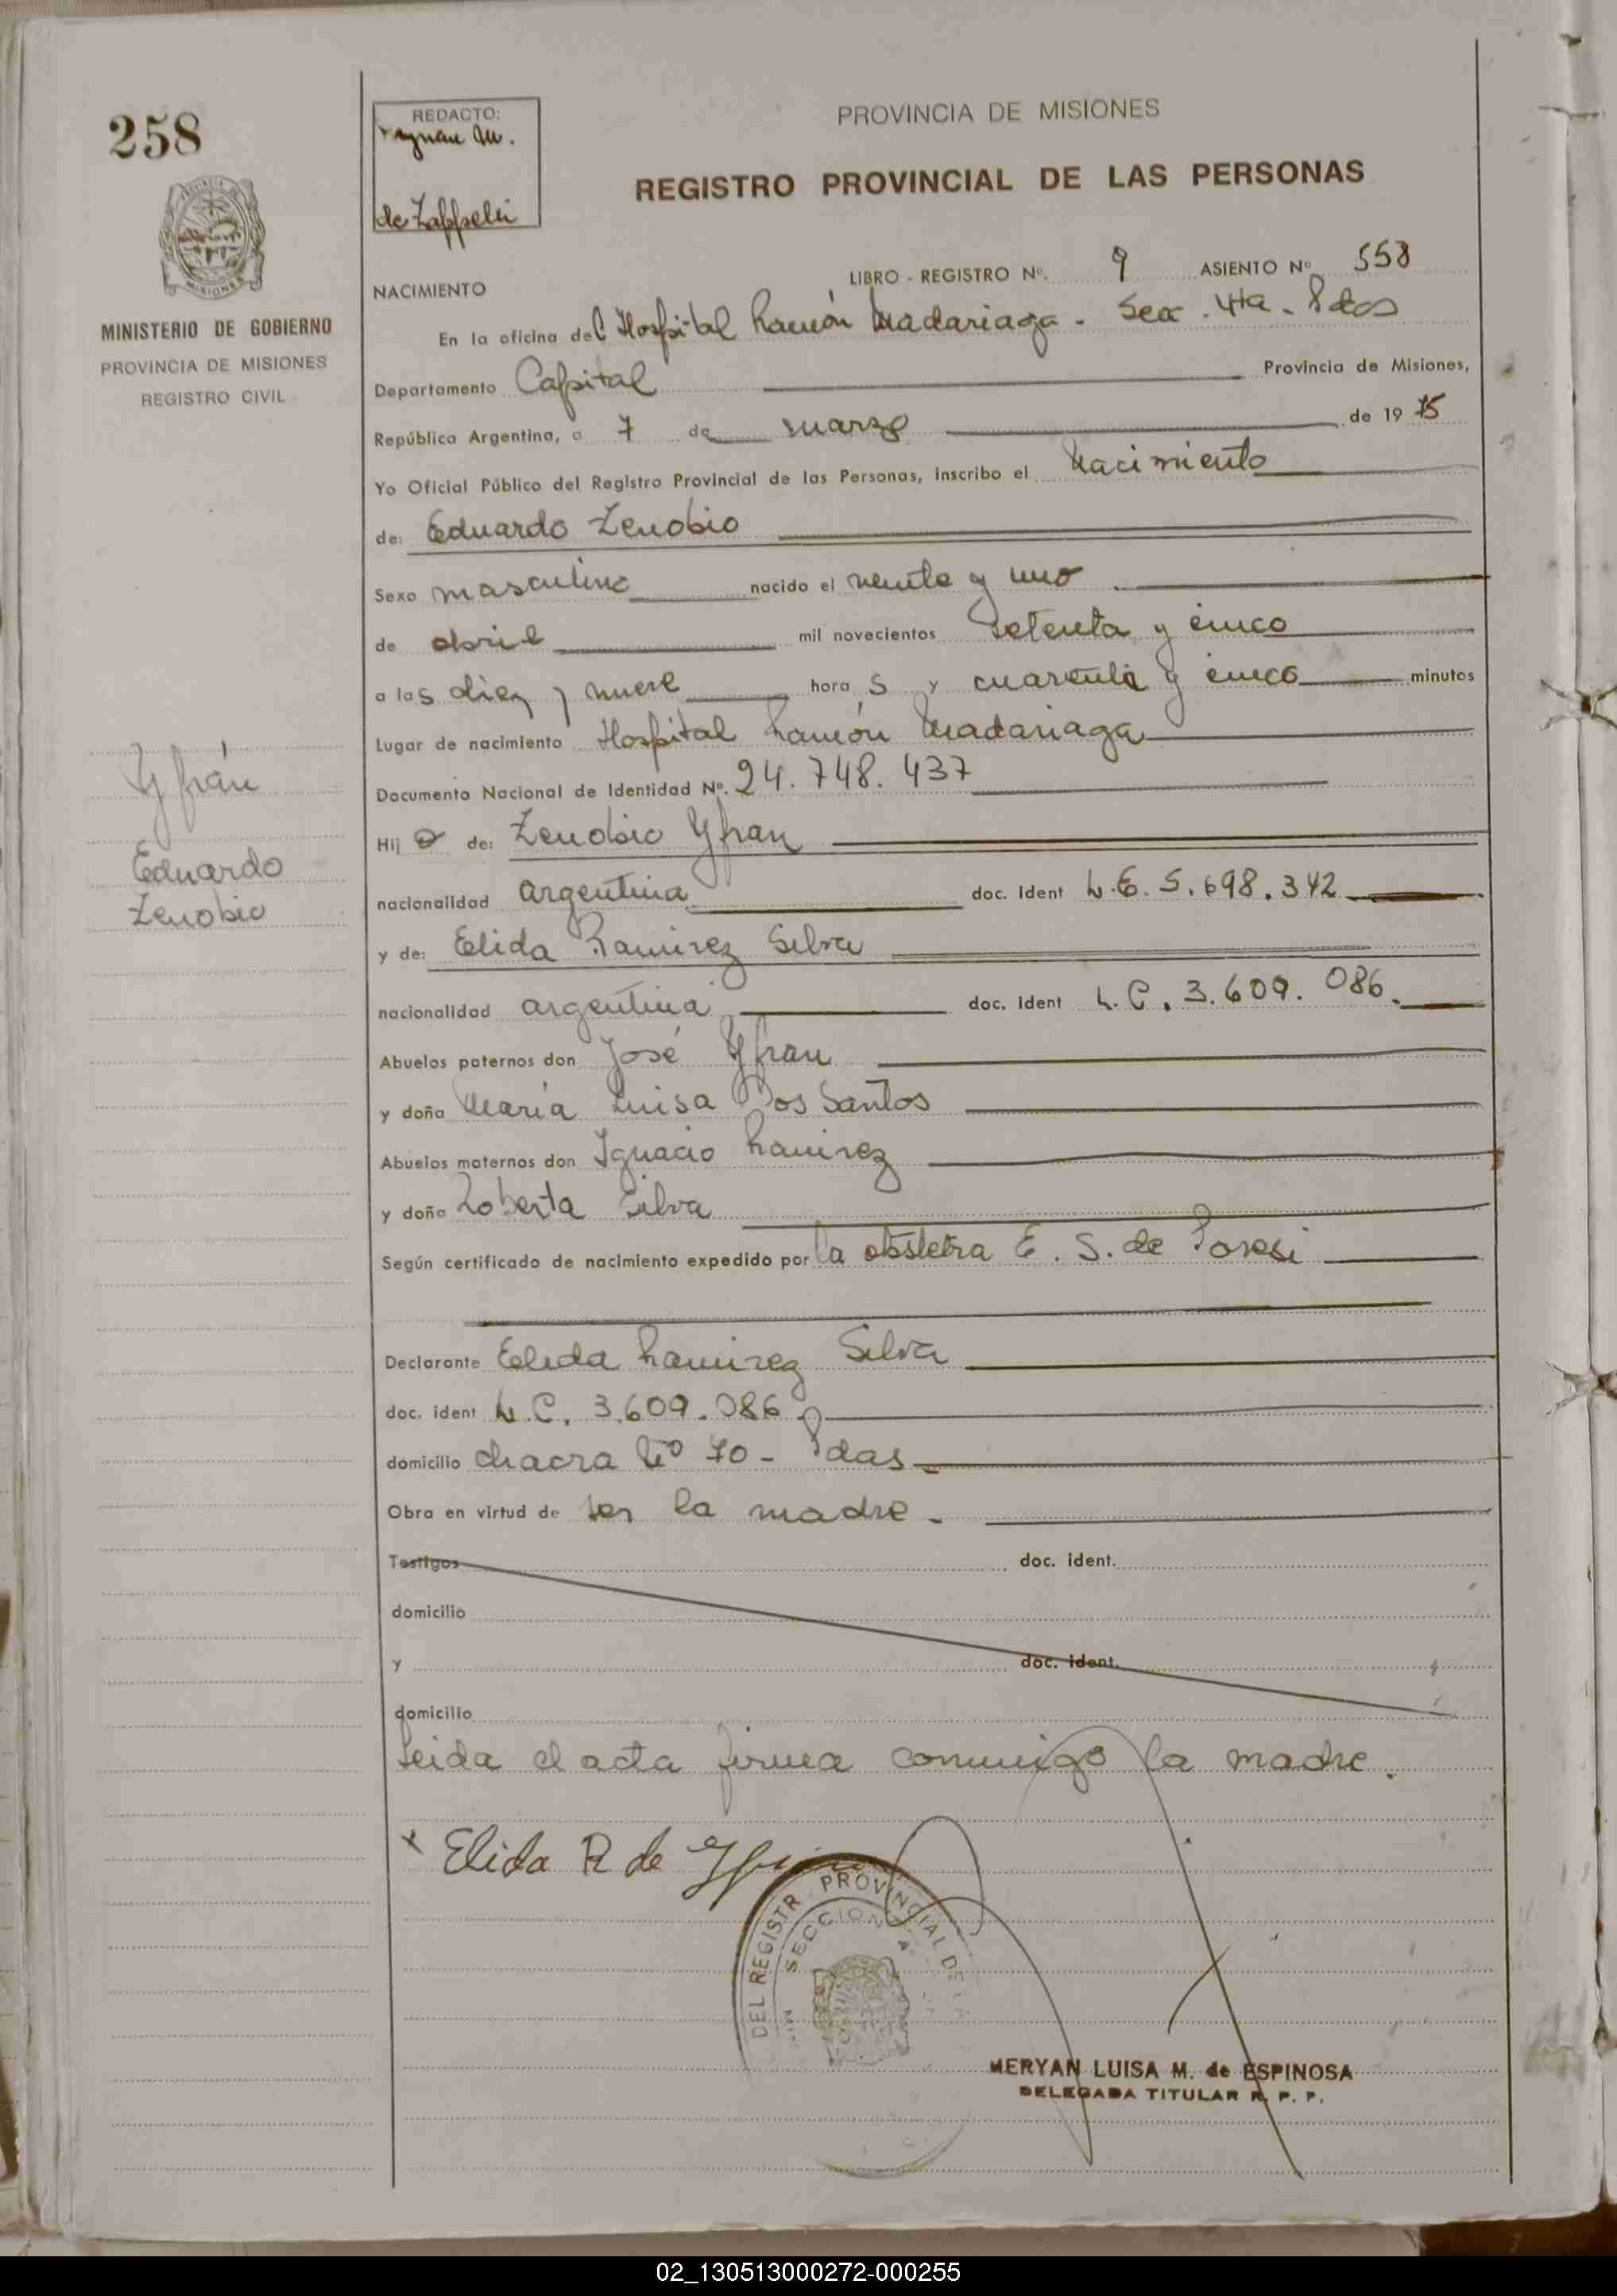 258
REDACTO:
de Zappelli
PROVINCIA DE MISIONES
REGISTRO PROVINCIAL DE LAS PERSONAS
MINISTERIO DE GOBIERNO
PROVINCIA DE MISIONES
REGISTRO CIVIL
NACIMIENTO
LIBRO - REGISTRO Nº. 9 ASIENTO Nº 558
En la oficina del Hospital Ramón Madariaga - Secc. 4ta - Pdas
Departamento Capital Provincia de Misiones,
República Argentina, a 7 de marzo de 1975
Yo Oficial Público del Registro Provincial de las Personas, inscribo el Nacimiento
de: Eduardo Zenobio
Sexo masculino nacido el veinte y uno
de abril mil novecientos setenta y cinco
a las diez y nueve hora s y cuarenta y cinco minutos
Lugar de nacimiento Hospital Ramón Madariaga
Documento Nacional de Identidad Nº. 24.748.437
Hij o de: Zenobio Yfran
nacionalidad argentina doc. ident L.E. 5.698.342
y de: Elida Ramirez Silva
nacionalidad argentina doc. ident L.C. 3.609.086.
Abuelos paternos don José Yfran
y doña María Luisa Dos Santos
Abuelos maternos don Ignacio Ramirez
y doña Roberta Silva
Según certificado de nacimiento expedido por la obstetra E. S. de
Declarante Elida Ramirez Silva
doc. ident L.C. 3.609.086
domicilio chacra Nº 70 - Pdas
Obra en virtud de ser la madre.
Testigos doc. ident.
domicilio
y doc. ident.
domicilio
Leida el acta firma conmigo la madre.
x Elida R de Yfran
Yfrán
Eduardo
Zenobio
DEL REGISTR PROVINCIAL DE LA
SECCION 4a
MERYAN LUISA M. de ESPINOSA
DELEGADA TITULAR R. P. P.
02_130513000272-000255